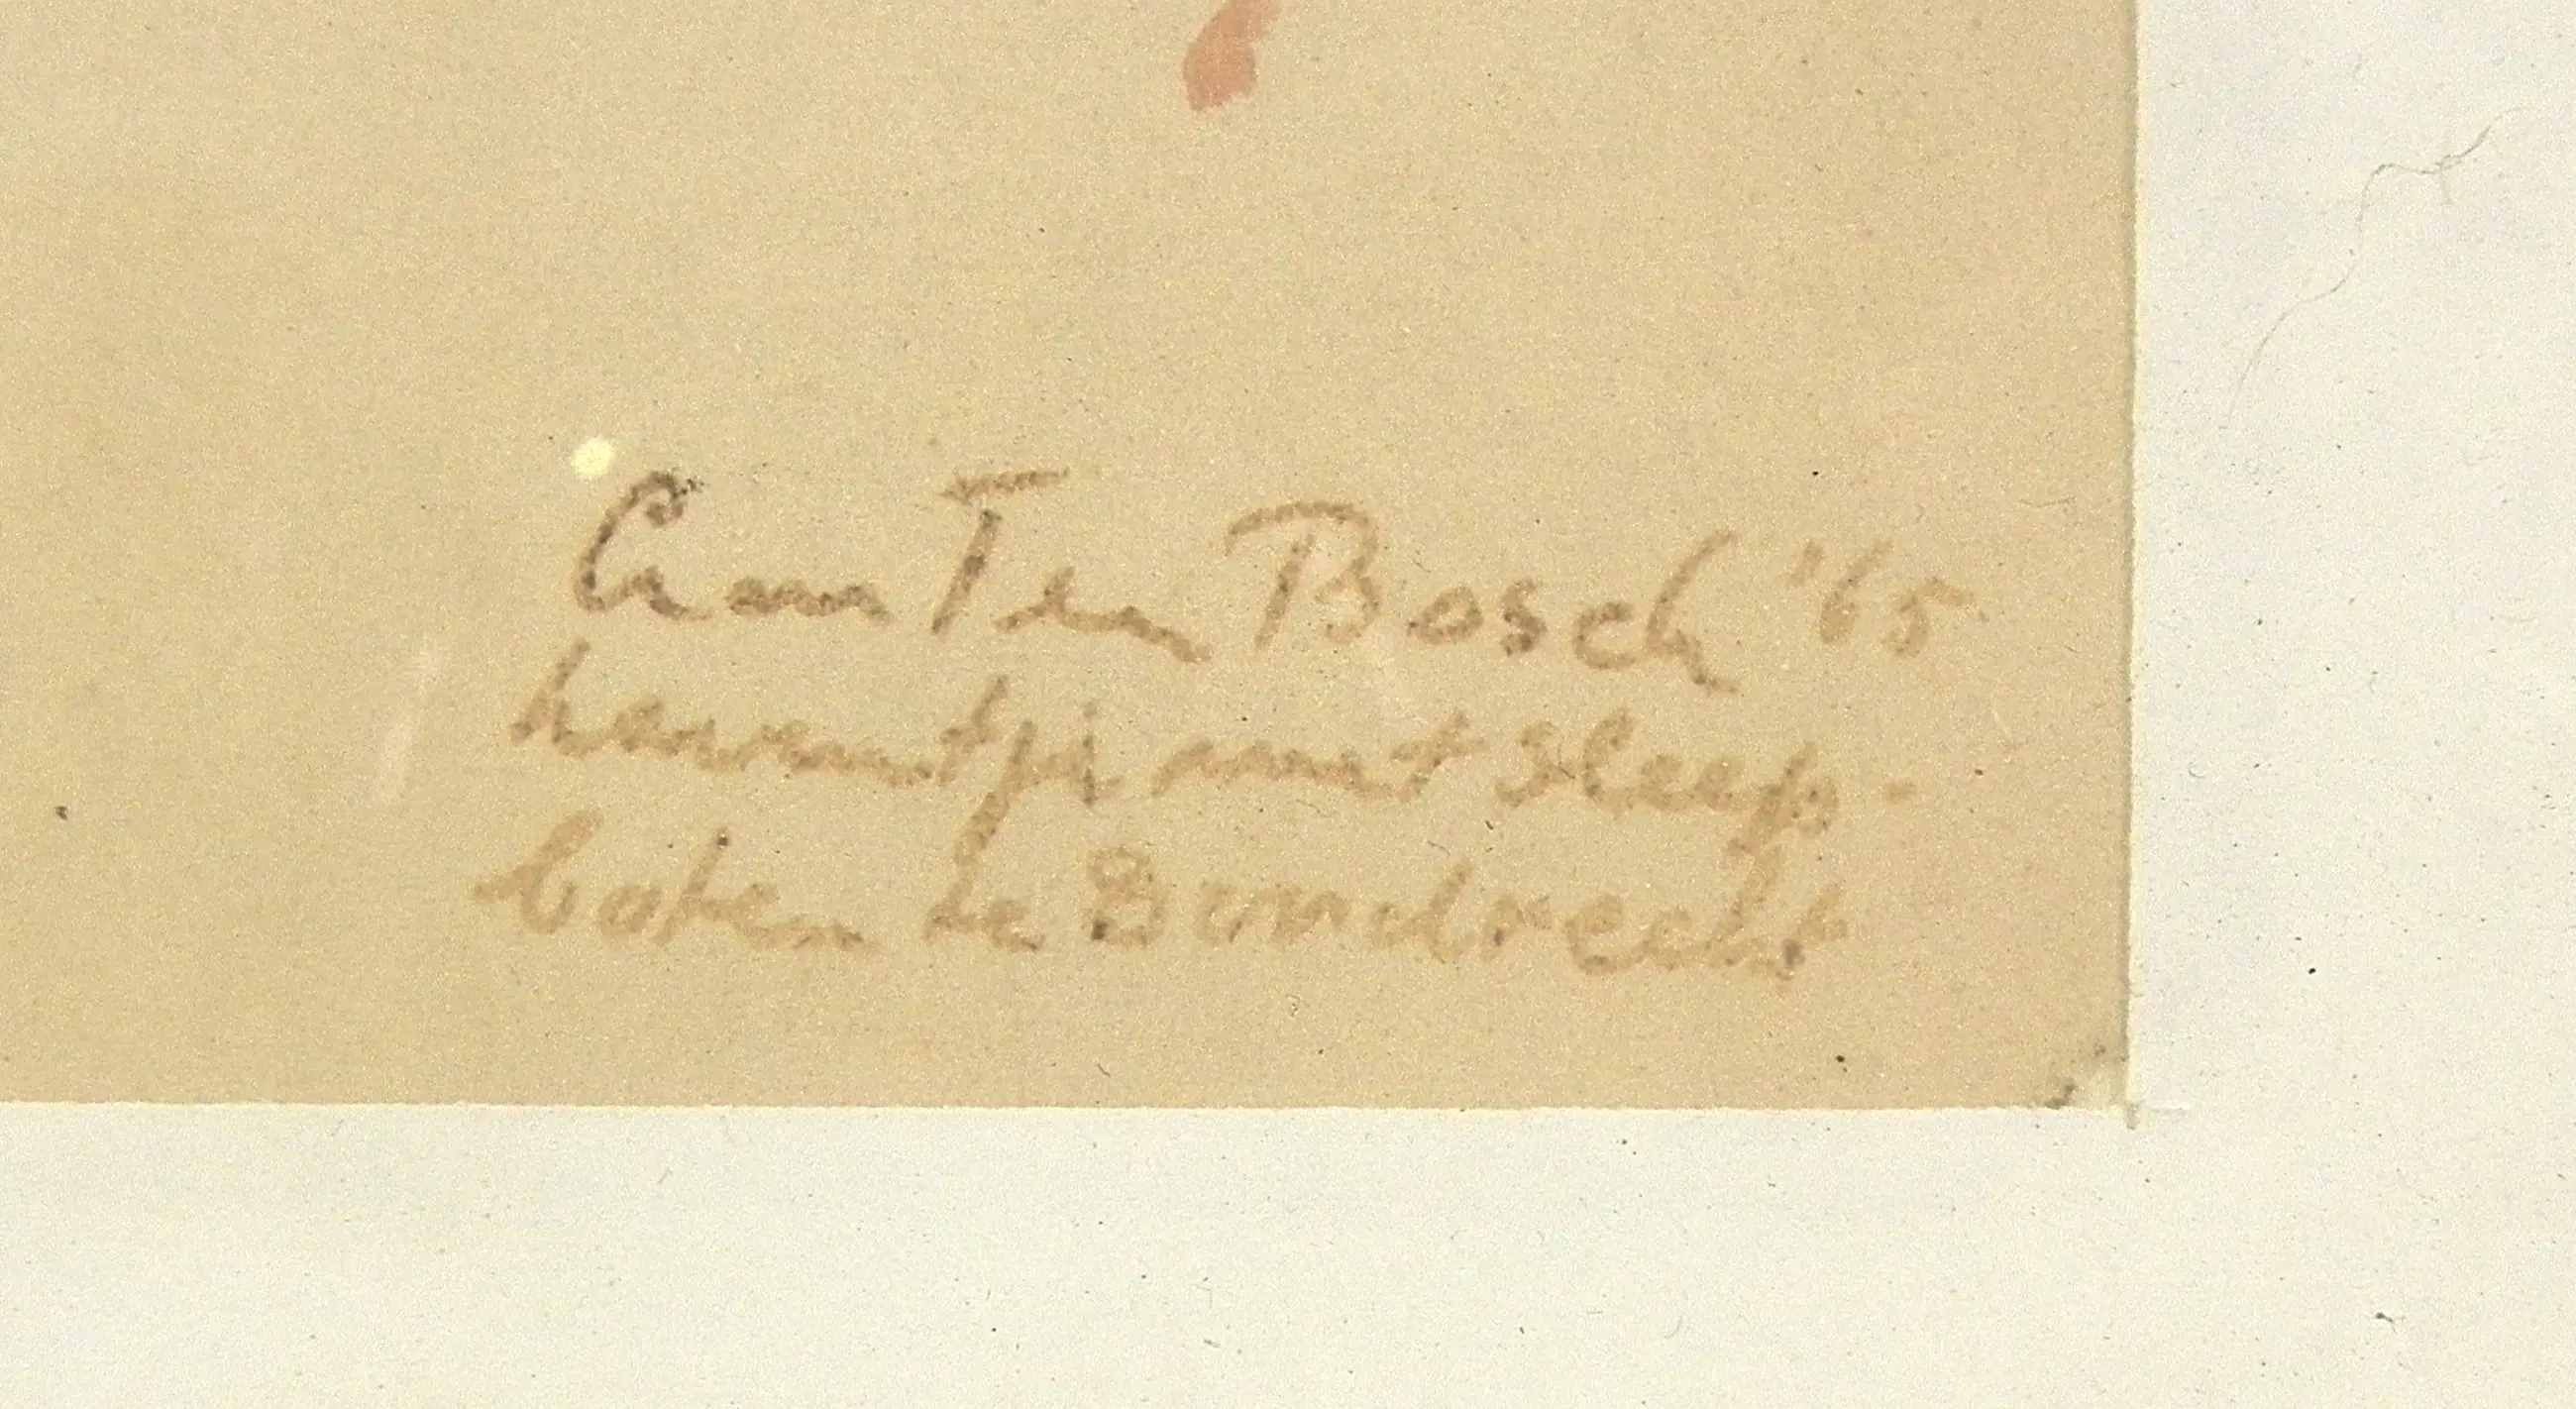 Cram Ten Bosch '65
haventje met sleep-
boten te Dordrecht